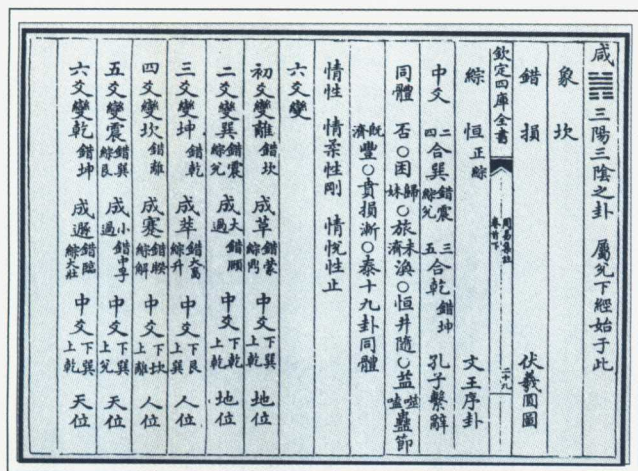 咸䷞三陽三陰之卦 屬兌下經始于此
象 坎
錯 損 伏羲圓圖
欽定四庫全書 周易集註 卷首下 二十九
綜 恒 正綜 文王序卦
中爻 二四 合巽 錯震 綜兌 三五 合乾 錯坤 孔子繫辭
同體 否○困 歸妹○旅 未濟 渙○恒井隨○益 噬嗑 蠱節
既濟 豐○賁損漸○泰十九卦同體
情性 情柔性剛 情悅性止
六爻變
初爻變離 錯坎 成革 錯蒙 綜鼎 中爻 下巽 上乾 地位
二爻變巽 錯震 綜兌 成大過 錯頤 中爻 下乾 上乾 地位
三爻變坤 錯乾 成萃 錯大畜 綜升 中爻 下艮 上巽 人位
四爻變坎 錯離 成蹇 錯睽 綜解 中爻 下坎 上離 人位
五爻變震 錯巽 綜艮 成小過 錯中孚 中爻 下巽 上兌 天位
六爻變乾 錯坤 成遯 錯臨 綜大壯 中爻 下巽 上乾 天位